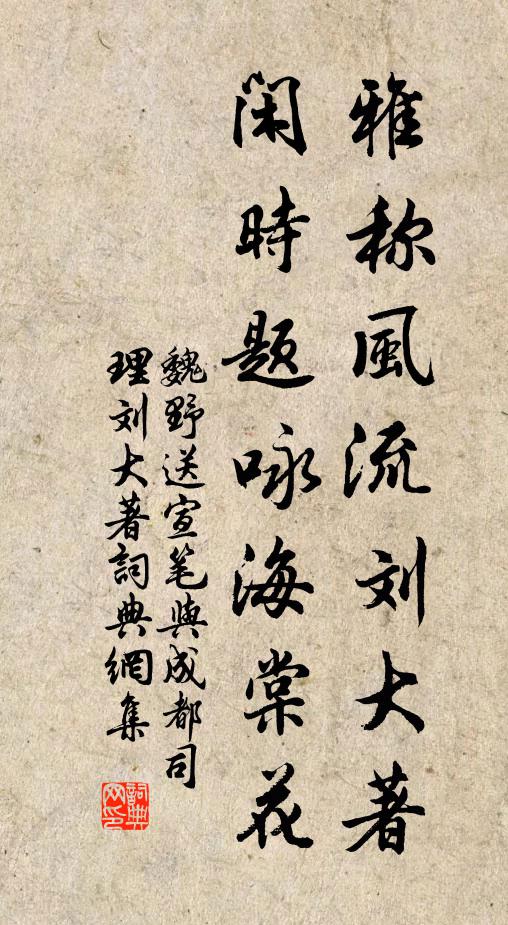 雅称風流刘大著
閑時题咏海棠花
魏野送宣笔與成都司
理刘大著詞典網集
詞典
网印